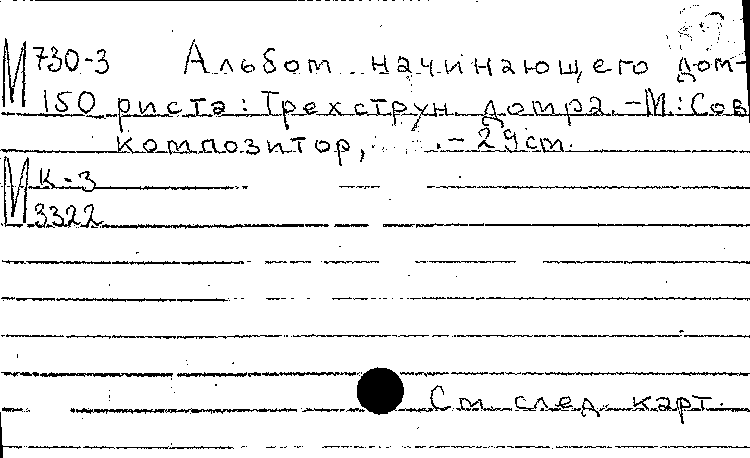 М 730-3 Альбом начинающего дом-
150 риста: Трехструн. домра. – М.: Сов
композитор, . – 29 см.
М К-3
3322
См след. карт.